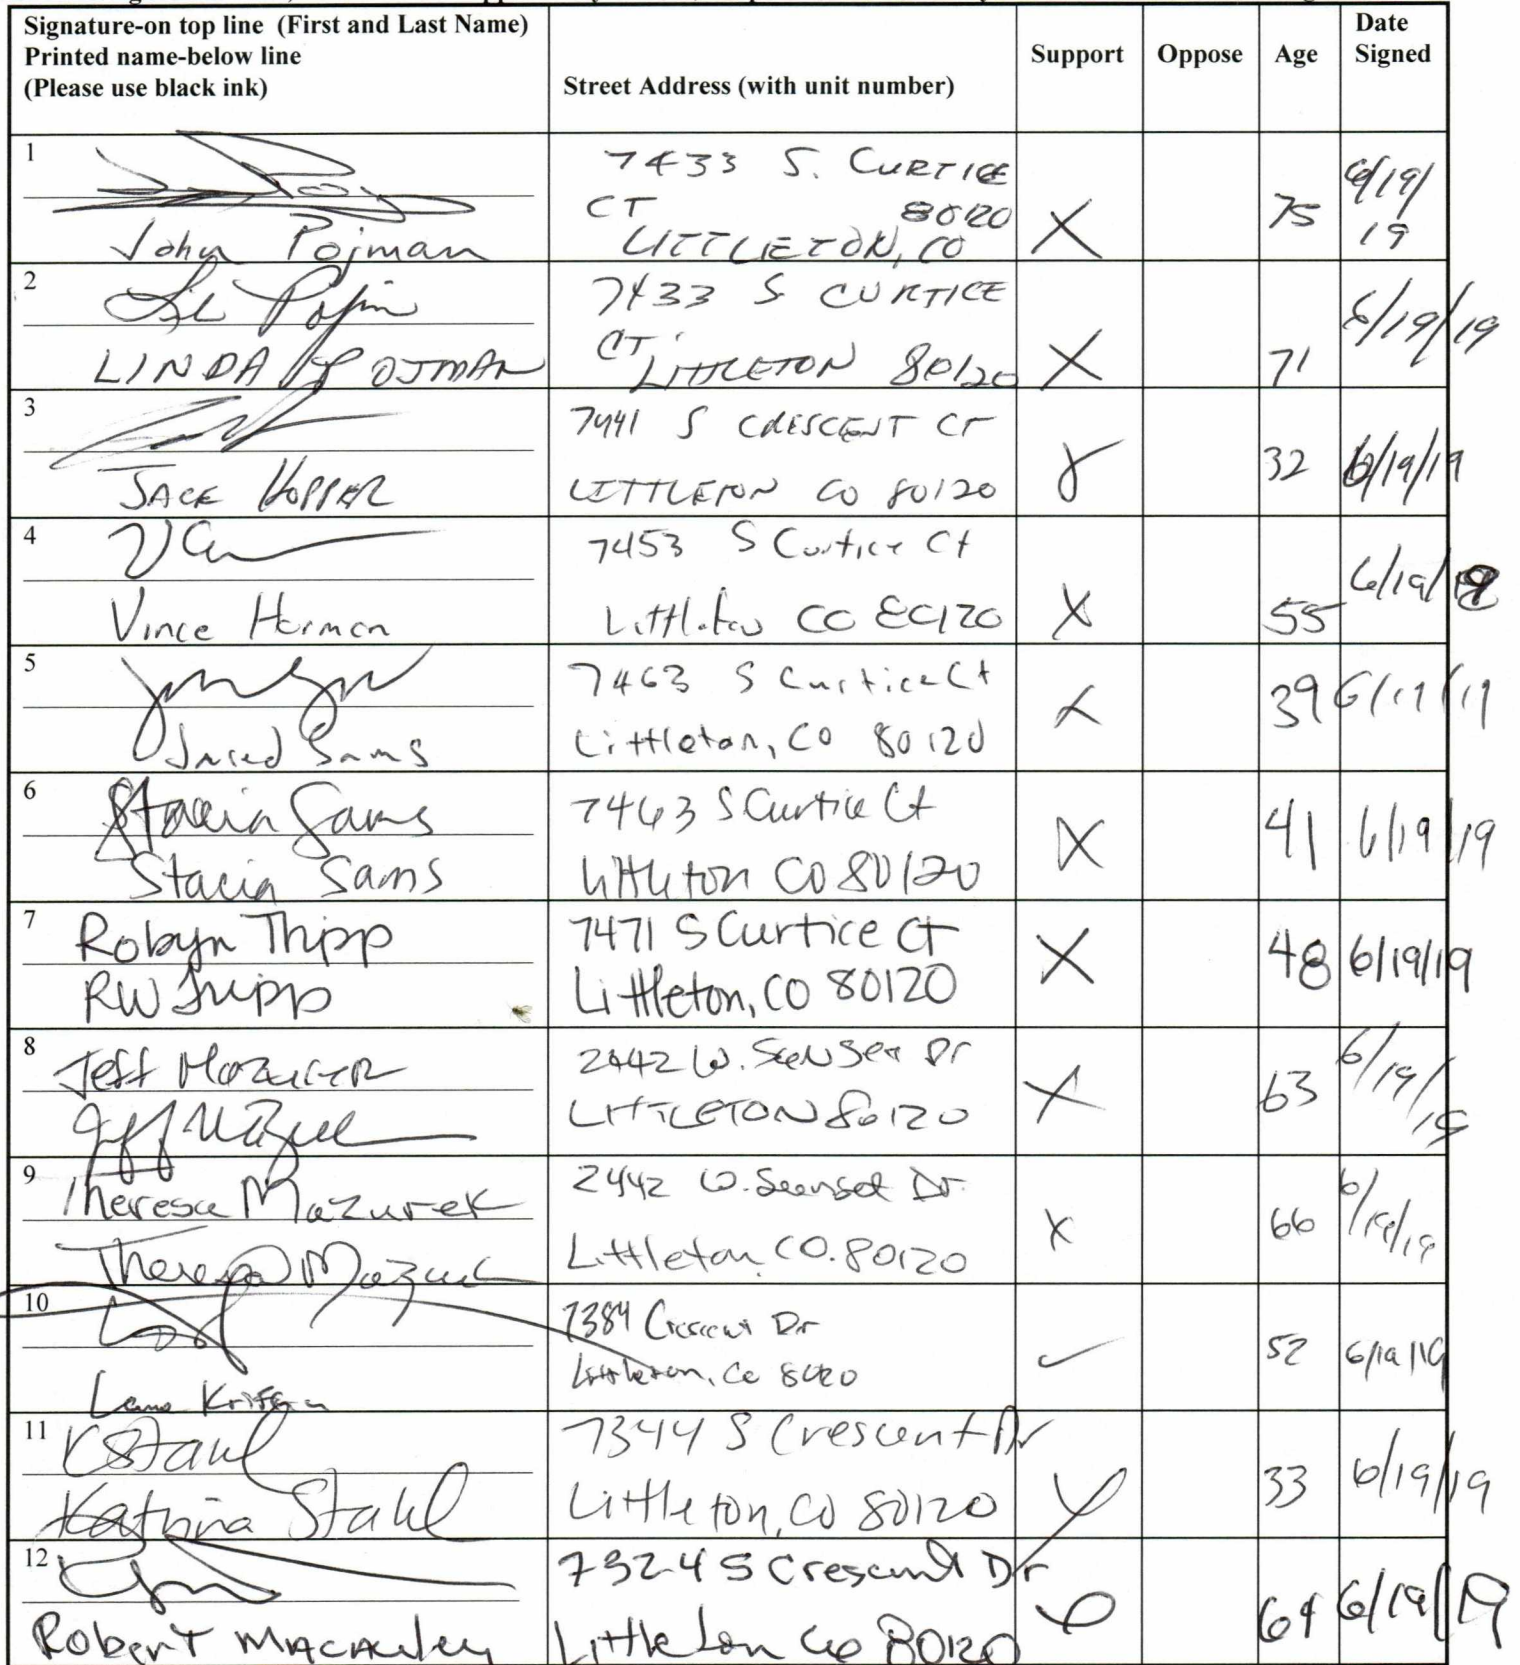 Signature-on top line (First and Last Name)
Printed name-below line
(Please use black ink)
Street Address (with unit number)
Support
Oppose
Age
Date
Signed
1
John Pojman
7433 S. CURTICE
CT 80120
LITTLETON, CO
X
75
6/19/
19
2
LINDA POJMAN
7433 S CURTICE
CT.
LITTLETON 80120
X
71
6/19/19
3
JACE HOPPER
7441 S CRESCENT CT
LITTLETON CO 80120
X
32
6/19/19
4
Vince Harman
7453 S Curtice Ct
Littleton CO 80120
X
55
6/19/19
5
Jared Sams
7463 S Curtice Ct
Littleton, CO 80120
X
39
6/19/19
6
Stacia Sams
Stacia Sams
7463 S Curtice Ct
Littleton CO 80120
X
41
6/19/19
7
Robyn Tripp
RW Tripp
7471 S Curtice Ct
Littleton, CO 80120
X
48
6/19/19
8
Jeff Mazurek
Jeff Mazurek
2442 W. Sunset Dr
LITTLETON 80120
X
63
6/19/
19
9
Theresa Mazurek
Theresa Mazurek
2442 W. Sunset Dr.
Littleton, CO. 80120
X
66
6/19/19
10
7384 Crescent Dr
Littleton, Co 80120
✓
52
6/19/19
11
K Stahl
Katrina Stahl
7344 S Crescent Dr
Littleton, CO 80120
X
33
6/19/19
12
Robert Macauley
7324 S Crescent Dr
Littleton Co 80120
64
6/19/19